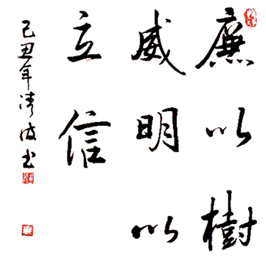 廉以樹
威明以
立信
己丑年清波书